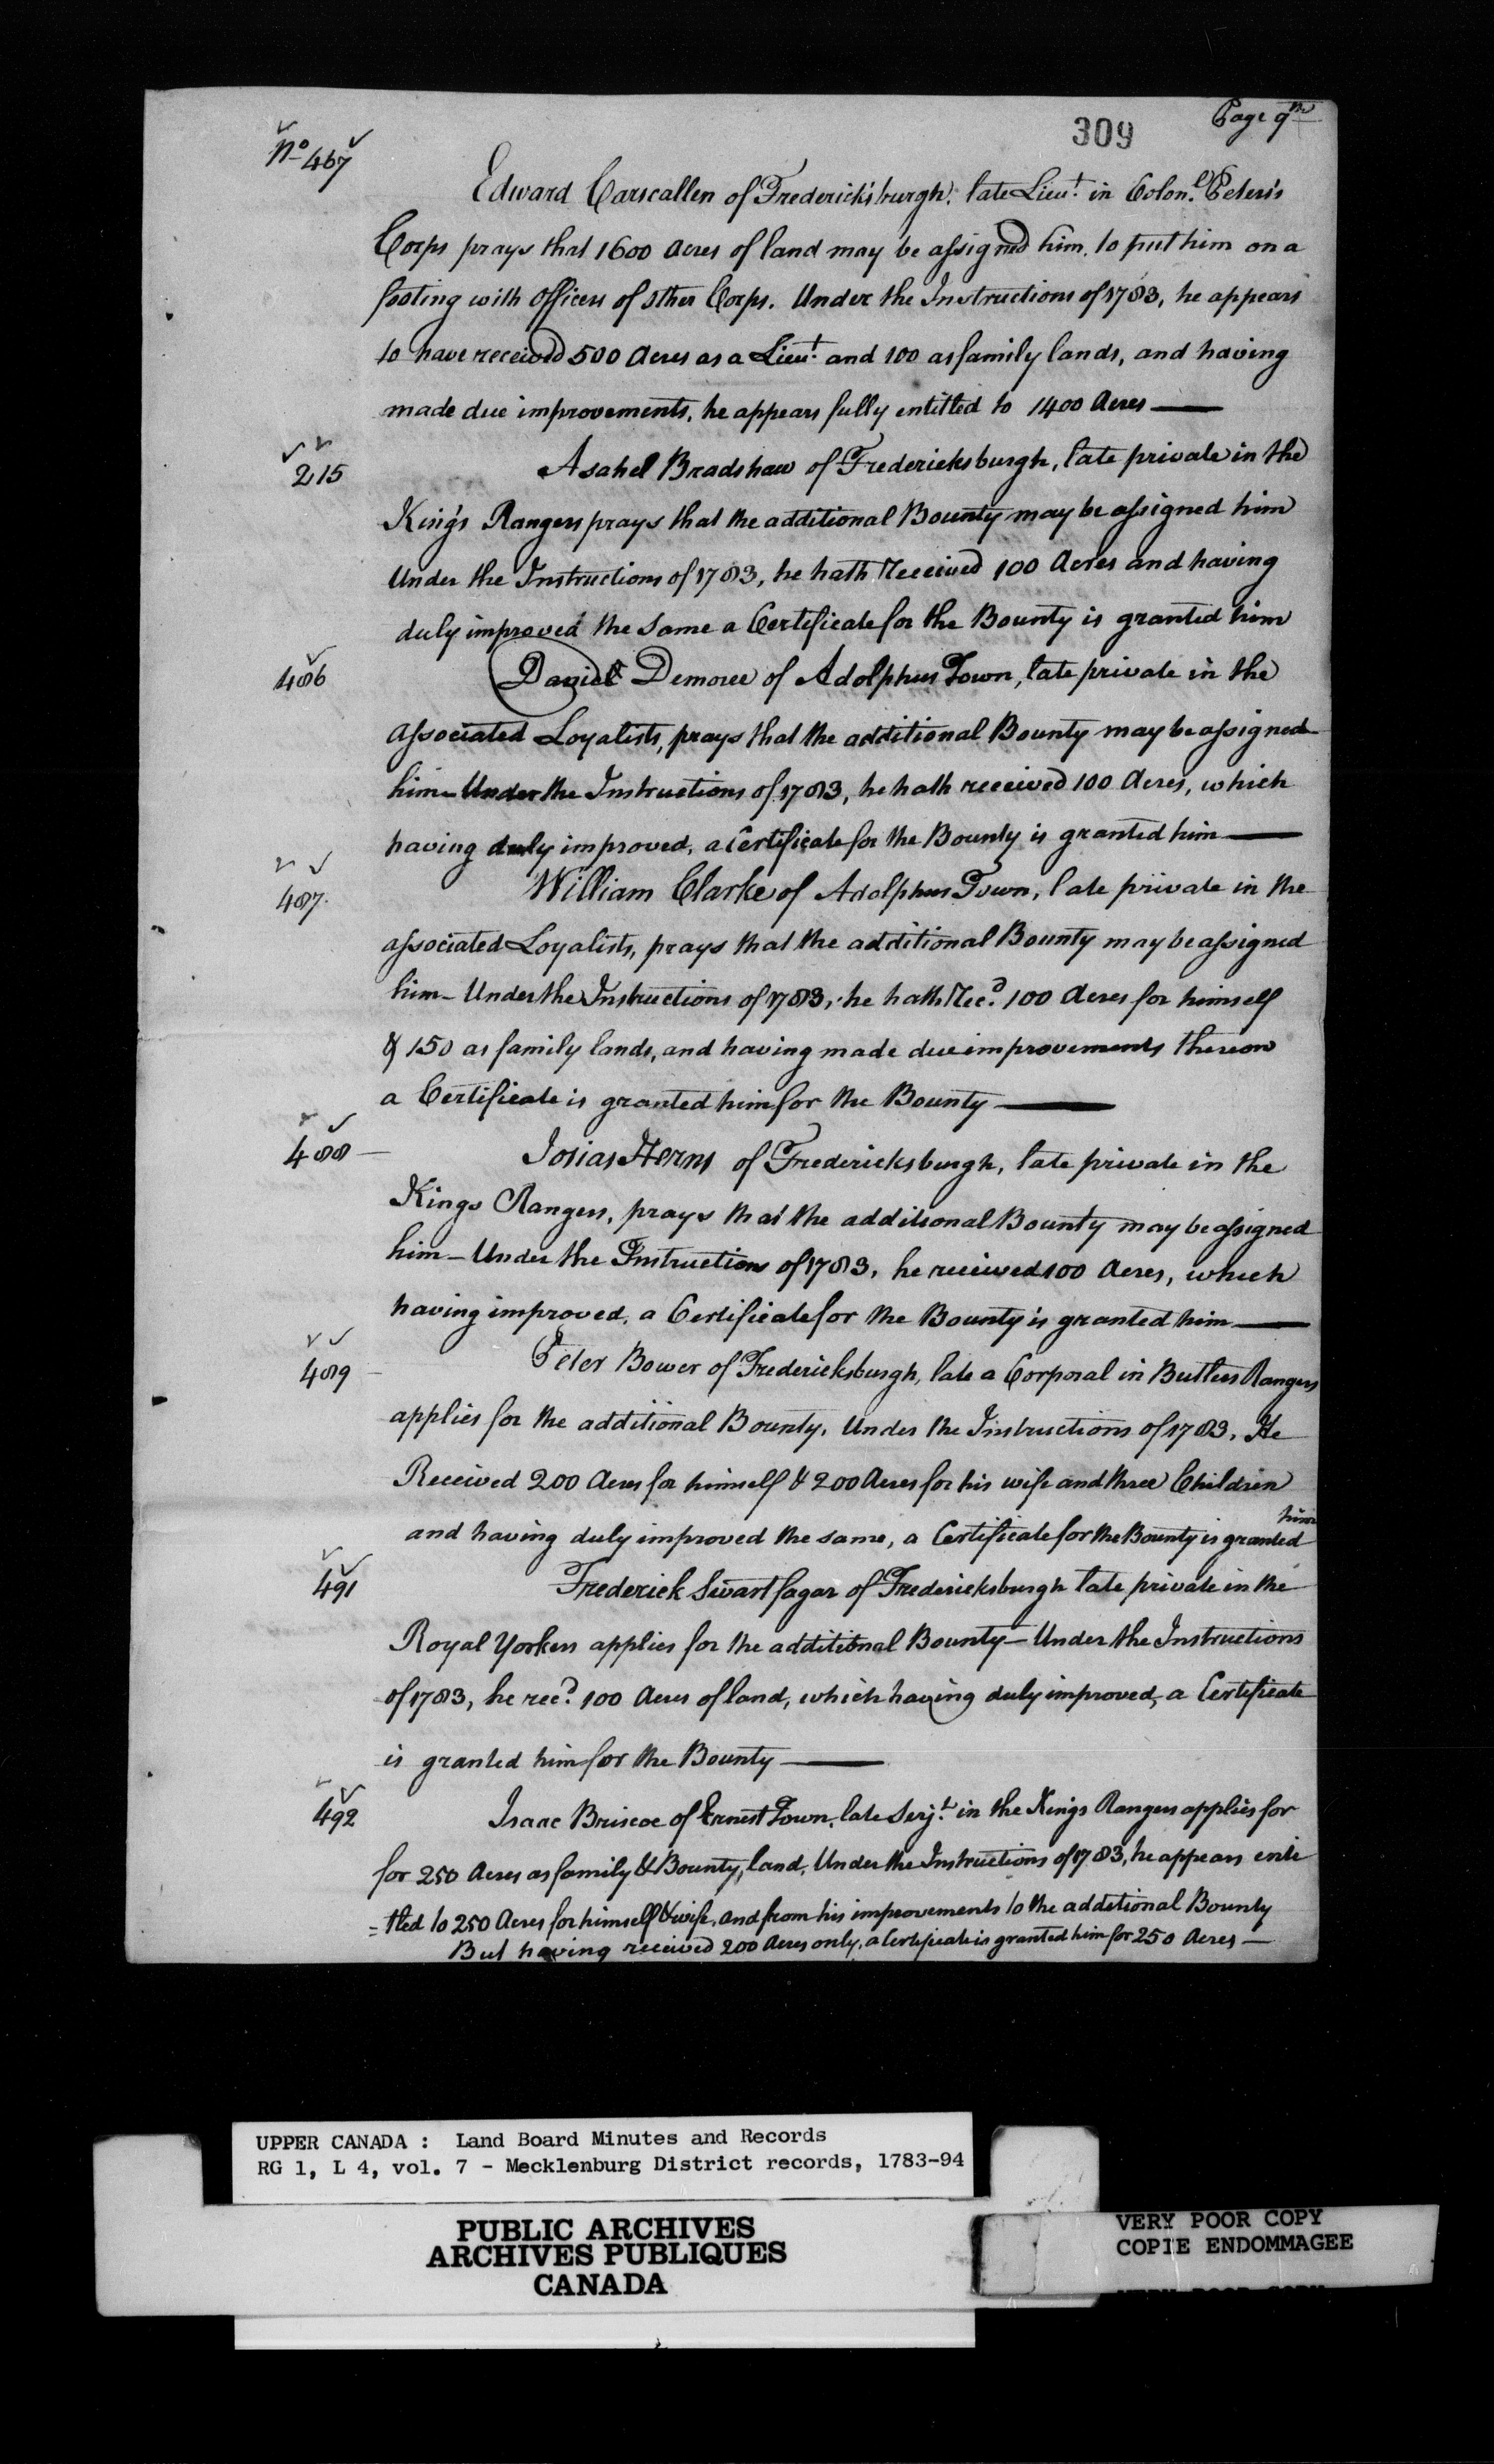 309
Page 9th
No 467
Edward Carscallen of Fredericksburgh, late Lieut. in Colonl. Peters's
Corps prays that 1600 Acres of land may be assigned him, to put him on a
footing with Officers of other Corps. Under the Instructions of 1783, he appears
to have received 500 Acres as a Lieut. and 100 as family lands, and having
made due improvements, he appears fully entitled to 1400 Acres —
215
Asahel Bradshaw of Fredericksburgh, late private in the
King's Rangers prays that the additional Bounty may be assigned him
Under the Instructions of 1783, he hath Received 100 Acres and having
duly improved the same a Certificate for the Bounty is granted him
486
Daniel Demoree of Adolphus Town, late private in the
associated Loyalists, prays that the additional Bounty may be assigned
him - Under the Instructions of 1783, he hath received 100 Acres, which
having duly improved, a Certificate for the Bounty is granted him —
487.
William Clarke of Adolphus Town, late private in the
associated Loyalists, prays that the additional Bounty may be assigned
him - Under the Instructions of 1783, he hath Recd. 100 Acres for himself
& 150 as family lands, and having made due improvements thereon
a Certificate is granted him for the Bounty —
488 —
Josias Herns of Fredericksburgh, late private in the
Kings Rangers, prays that the additional Bounty may be assigned
him - Under the Instructions of 1783, he received 100 Acres, which
having improved, a Certificate for the Bounty is granted him —
489 -
Peter Bower of Fredericksburgh, late a Corporal in Butlers Rangers
applies for the additional Bounty, Under the Instructions of 1783, He
Received 200 Acres for himself & 200 Acres for his wife and three Children
and having duly improved the same, a Certificate for the Bounty is granted him
491
Frederick Swartfagar of Fredericksburgh late private in the
Royal Yorkers applies for the additional Bounty - Under the Instructions
of 1783, he recd. 100 Acres of land, which having duly improved, a Certificate
is granted him for the Bounty —
492
Isaac Briscoe of Ernest Town, late Serjt. in the Kings Rangers applies for
for 250 Acres as family & Bounty land, Under the Instructions of 1783, he appears enti
=tled to 250 Acres for himself & wife, and from his improvements to the additional Bounty
But having received 200 Acres only, a Certificate is granted him for 250 Acres —
UPPER CANADA : Land Board Minutes and Records
RG 1, L 4, vol. 7 - Mecklenburg District records, 1783-94
PUBLIC ARCHIVES
ARCHIVES PUBLIQUES
CANADA
VERY POOR COPY
COPIE ENDOMMAGEE
VERY POOR COPY